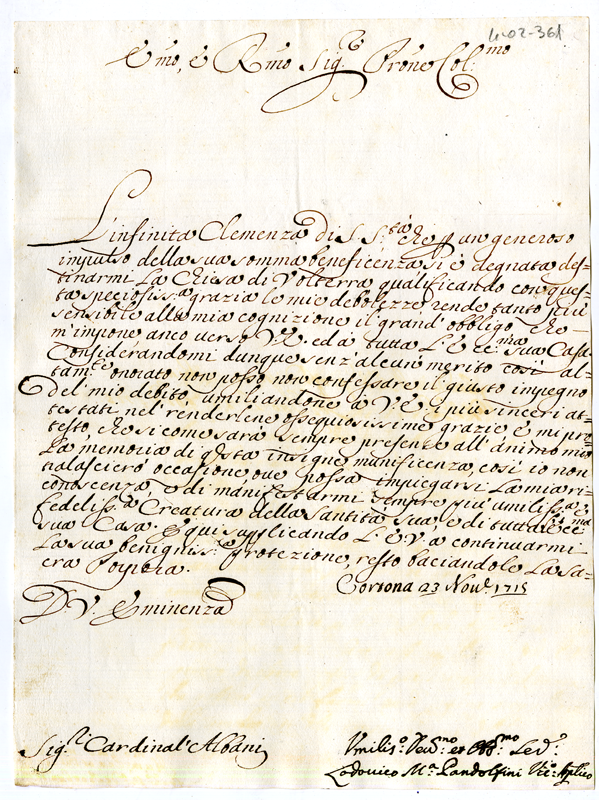 4-02-361
Emo, e Rmo Sig.re Prone Col.mo
L'infinita Clemenza di S. S.tà che p un generoso
impulso della sua somma beneficenza si è degnata des=
tinarmi La Chiesa di Volterra qualificando con ques=
ta speciosiss.a grazia le mie debolezze, rende tanto più
sensibile alla mia cognizione il grand'obbligo, che
m'impone anco verso V.E. ed à tutta L'Ecc.ma sua Casa.
Considerandomi dunque senz'alcun merito così al=
tam.te onorato non posso non confessare il giusto impegno
del mio debito, umiliandone à V.E. i più sinceri at=
testati nel renderlene ossequiosissime grazie, e mi pro=
testo che si come sarà sempre presente all'animo mio
La memoria di q̃sta insigne munificenza, così io non
tralascierò occasione, ove possa impiegarsi La mia ri=
conoscenza, e di manifestarmi sempre più umiliss.a e
fedeliss.a Creatura della Santità sua, e di tutta l'Ecc.ma
sua Casa. E qui supplicando L'E.V. a continuarmi
La sua benigniss.a protezione, resto baciandole La Sa=
cra Porpora.
Cortona 23 Nov.e 1715
D V. Eminenza
Sig.r Cardinal'Albani
Umilis.o Dev.mo et Obb.mo Ser.e
Lodovico M.a Pandolfini Vic.o Aplico